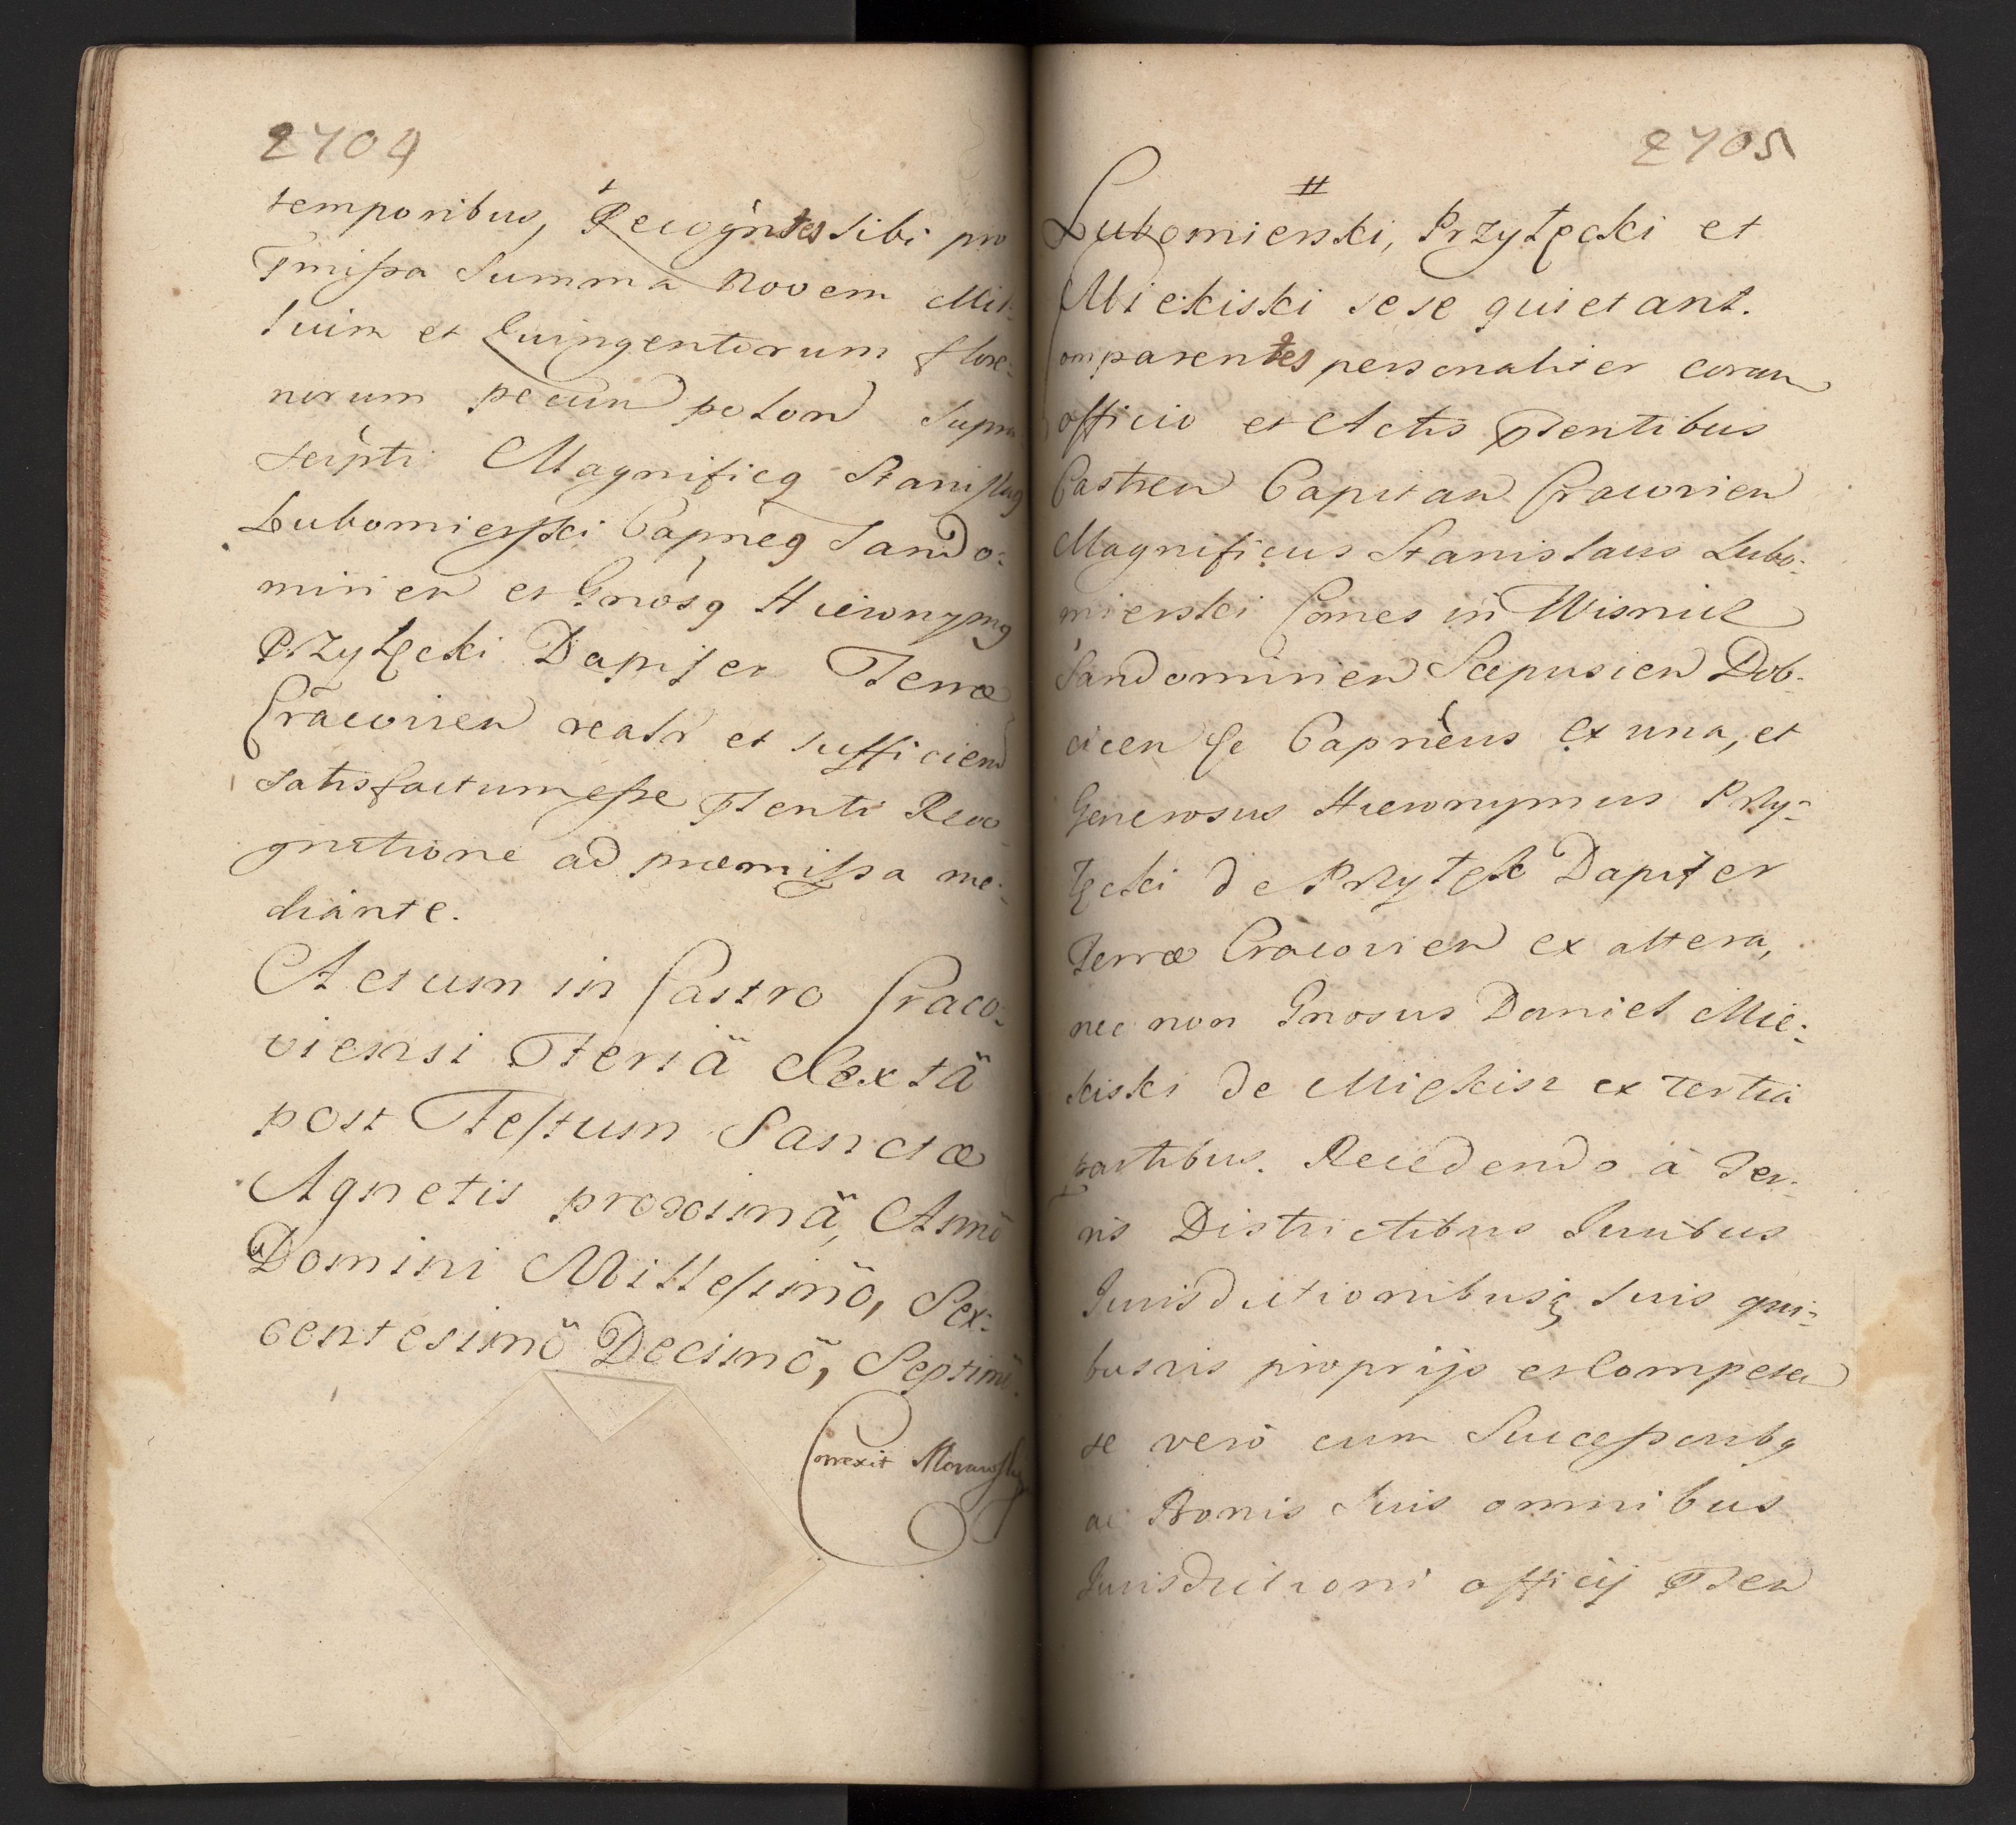 2704
temporibus, Recogńtes sibi pro
Pmissa Summa Novem Mil:
lium et Quingentorum flore:
norum pecun polon supra
scripti Magnificq Stanislaq
Lubomierski Capneq Sando:
mirien et Gnosq Hieronymq
Przyłęcki Dapifer Terræ
Cracovien realr et sufficien
satisfactum esse Psenti Reco
gnitione ad præmissa me:
diante.
Actum in Castro Craco:
viensi Feriâ Sextâ
post Festum Sanctæ
Agnetis proximâ, Annô
Domini Millesimô, Sex:
centesimô Decimô, Septimô.
Correxit Morawski
2705
Lubomierski, Przyłęcki et
Miekiski sese quietant.
Comparentes personaliter coram
officio et Actis Psentibus
Castren Capitan Cracovien
Magnificus Stanislaus Lubo:
mierski Comes in Wisnicz
Sandomirien Scepusien Dob-
cicen se Capnèus ex una, et
Generosus Hieronymus Przy-
łęcki de Przyłęk Dapifer
Terræ Cracovien ex altera,
nec non Gnosus Daniel Mie:
kiski de Miękisz ex tertia
partibus. Recedendo à Ter:
ris Districtibus Juribus
Jurisdictionibusq suis qui:
busvis proprijs et Competen
se verò cum Successoribq
ac Bonis Suis omnibus
Jurisdictioni officij Psen